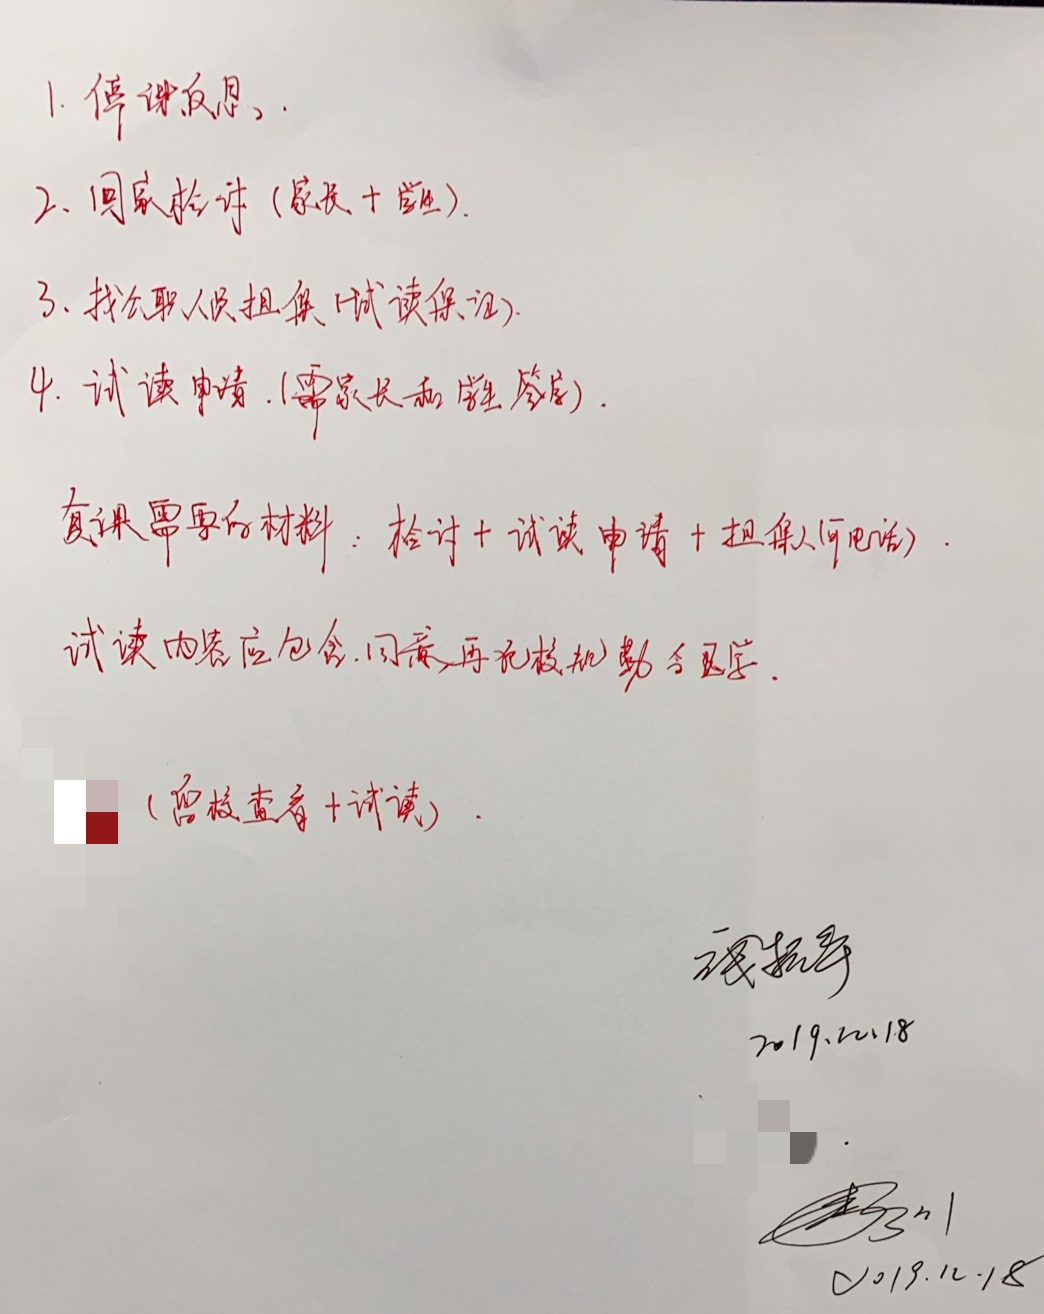 1. 停课反思、.
2、回家检讨(家长+学生).
3、找公职人员担保(试读保证).
4. 试读申请.(需家长和学生签字).
复课需要的材料:检讨+试读申请+担保人(何电话).
试读内容应包含.同意,再犯校规勒令退学.
(留校查看+试读).
2019.12.18
2019.12.18